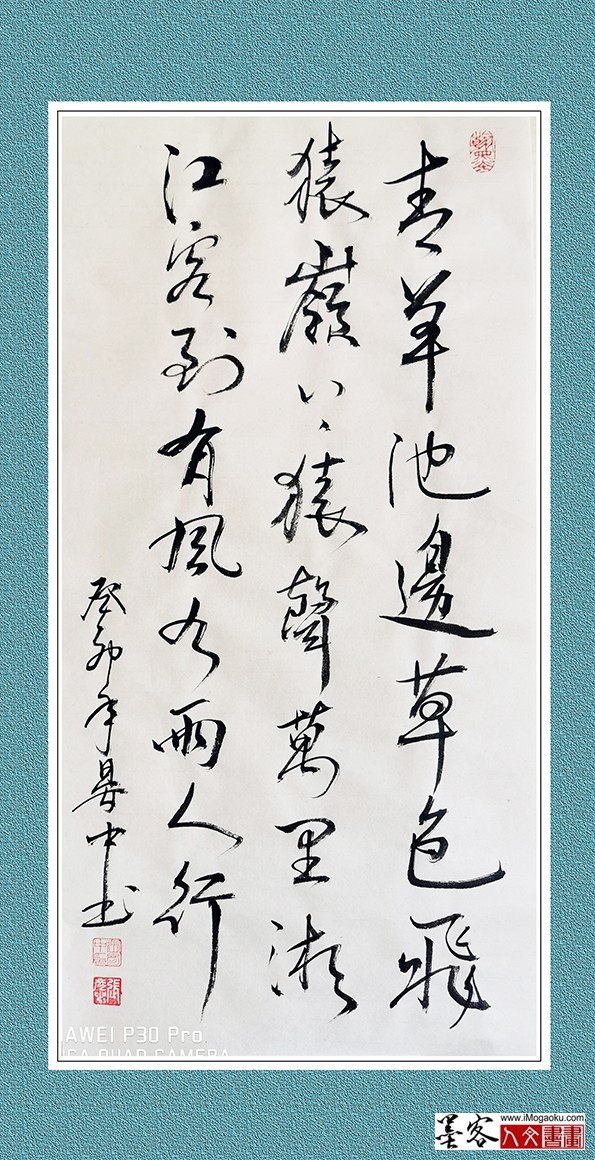 青草池邊草色飛
猿嶺上猿聲萬里湘
江客到有風有雨人行
癸卯年暑中书
AWEI P30 Pro
CA QUAD CAMERA
墨客
www.iMogaoku.com
人文書畫